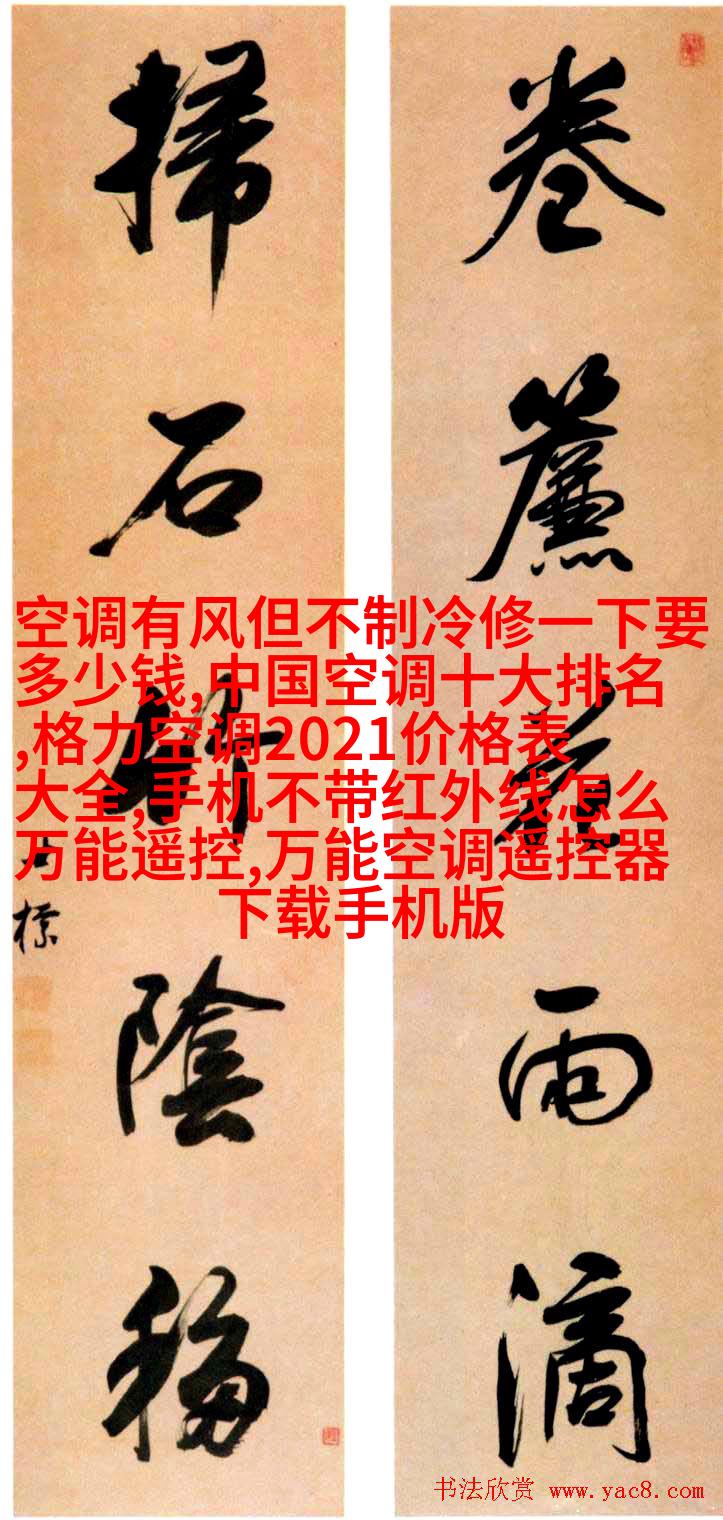 卷簾花雨滴
掃石竹陰移
空调有风但不制冷修一下要
多少钱,中国空调十大排名
,格力空调2021价格表
大全,手机不带红外线怎么
万能遥控,万能空调遥控器
下载手机版
书法欣赏 www.yac8.com